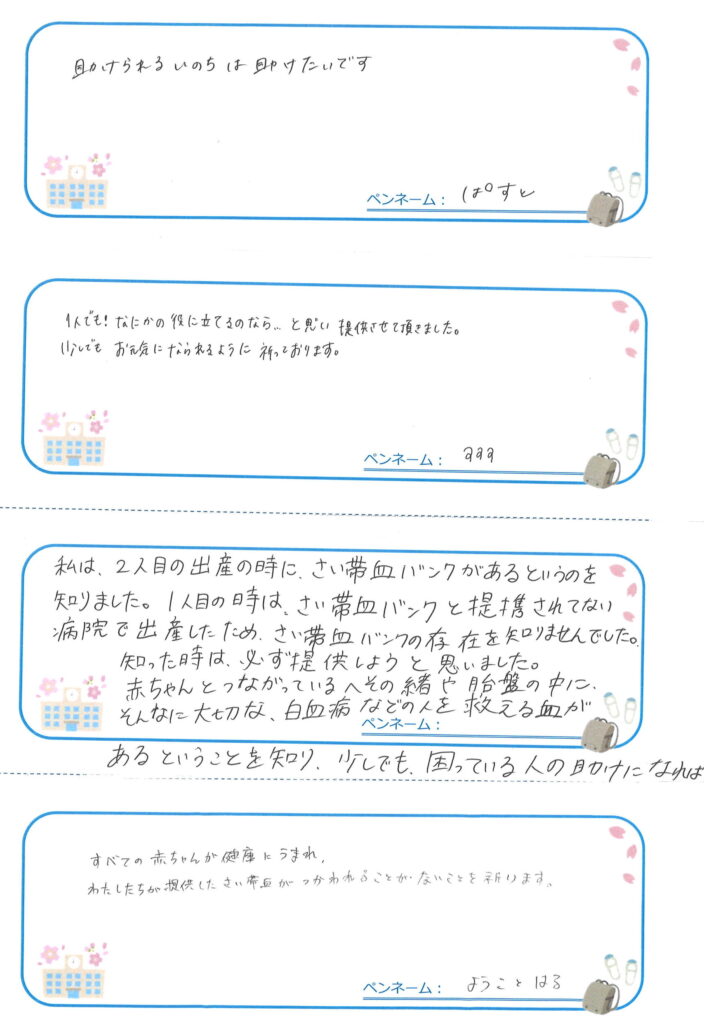 助けられるいのちは助けたいです
ペンネーム： ぱすと
1人でも!なにかの役に立てるのなら… と思い 提供させて頂きました。
少しでも お元気になられるように 祈っております。
ペンネーム：
私は、2人目の出産の時に、さい帯血バンクがあるというのを
知りました。1人目の時は、さい帯血バンクと提携されてない
病院で出産したため、さい帯血バンクの存在を知りませんでした。
知った時は、必ず提供しようと思いました。
赤ちゃんとつながっているへその緒や胎盤の中に、
そんなに大切な、白血病などの人を救える血が
ペンネーム：
あるということを知り、少しでも、困っている人の助けになれば
すべての赤ちゃんが健康にうまれ、
わたしたちが提供したさい帯血がつかわれることがないことを祈ります。
ペンネーム： ようことはる